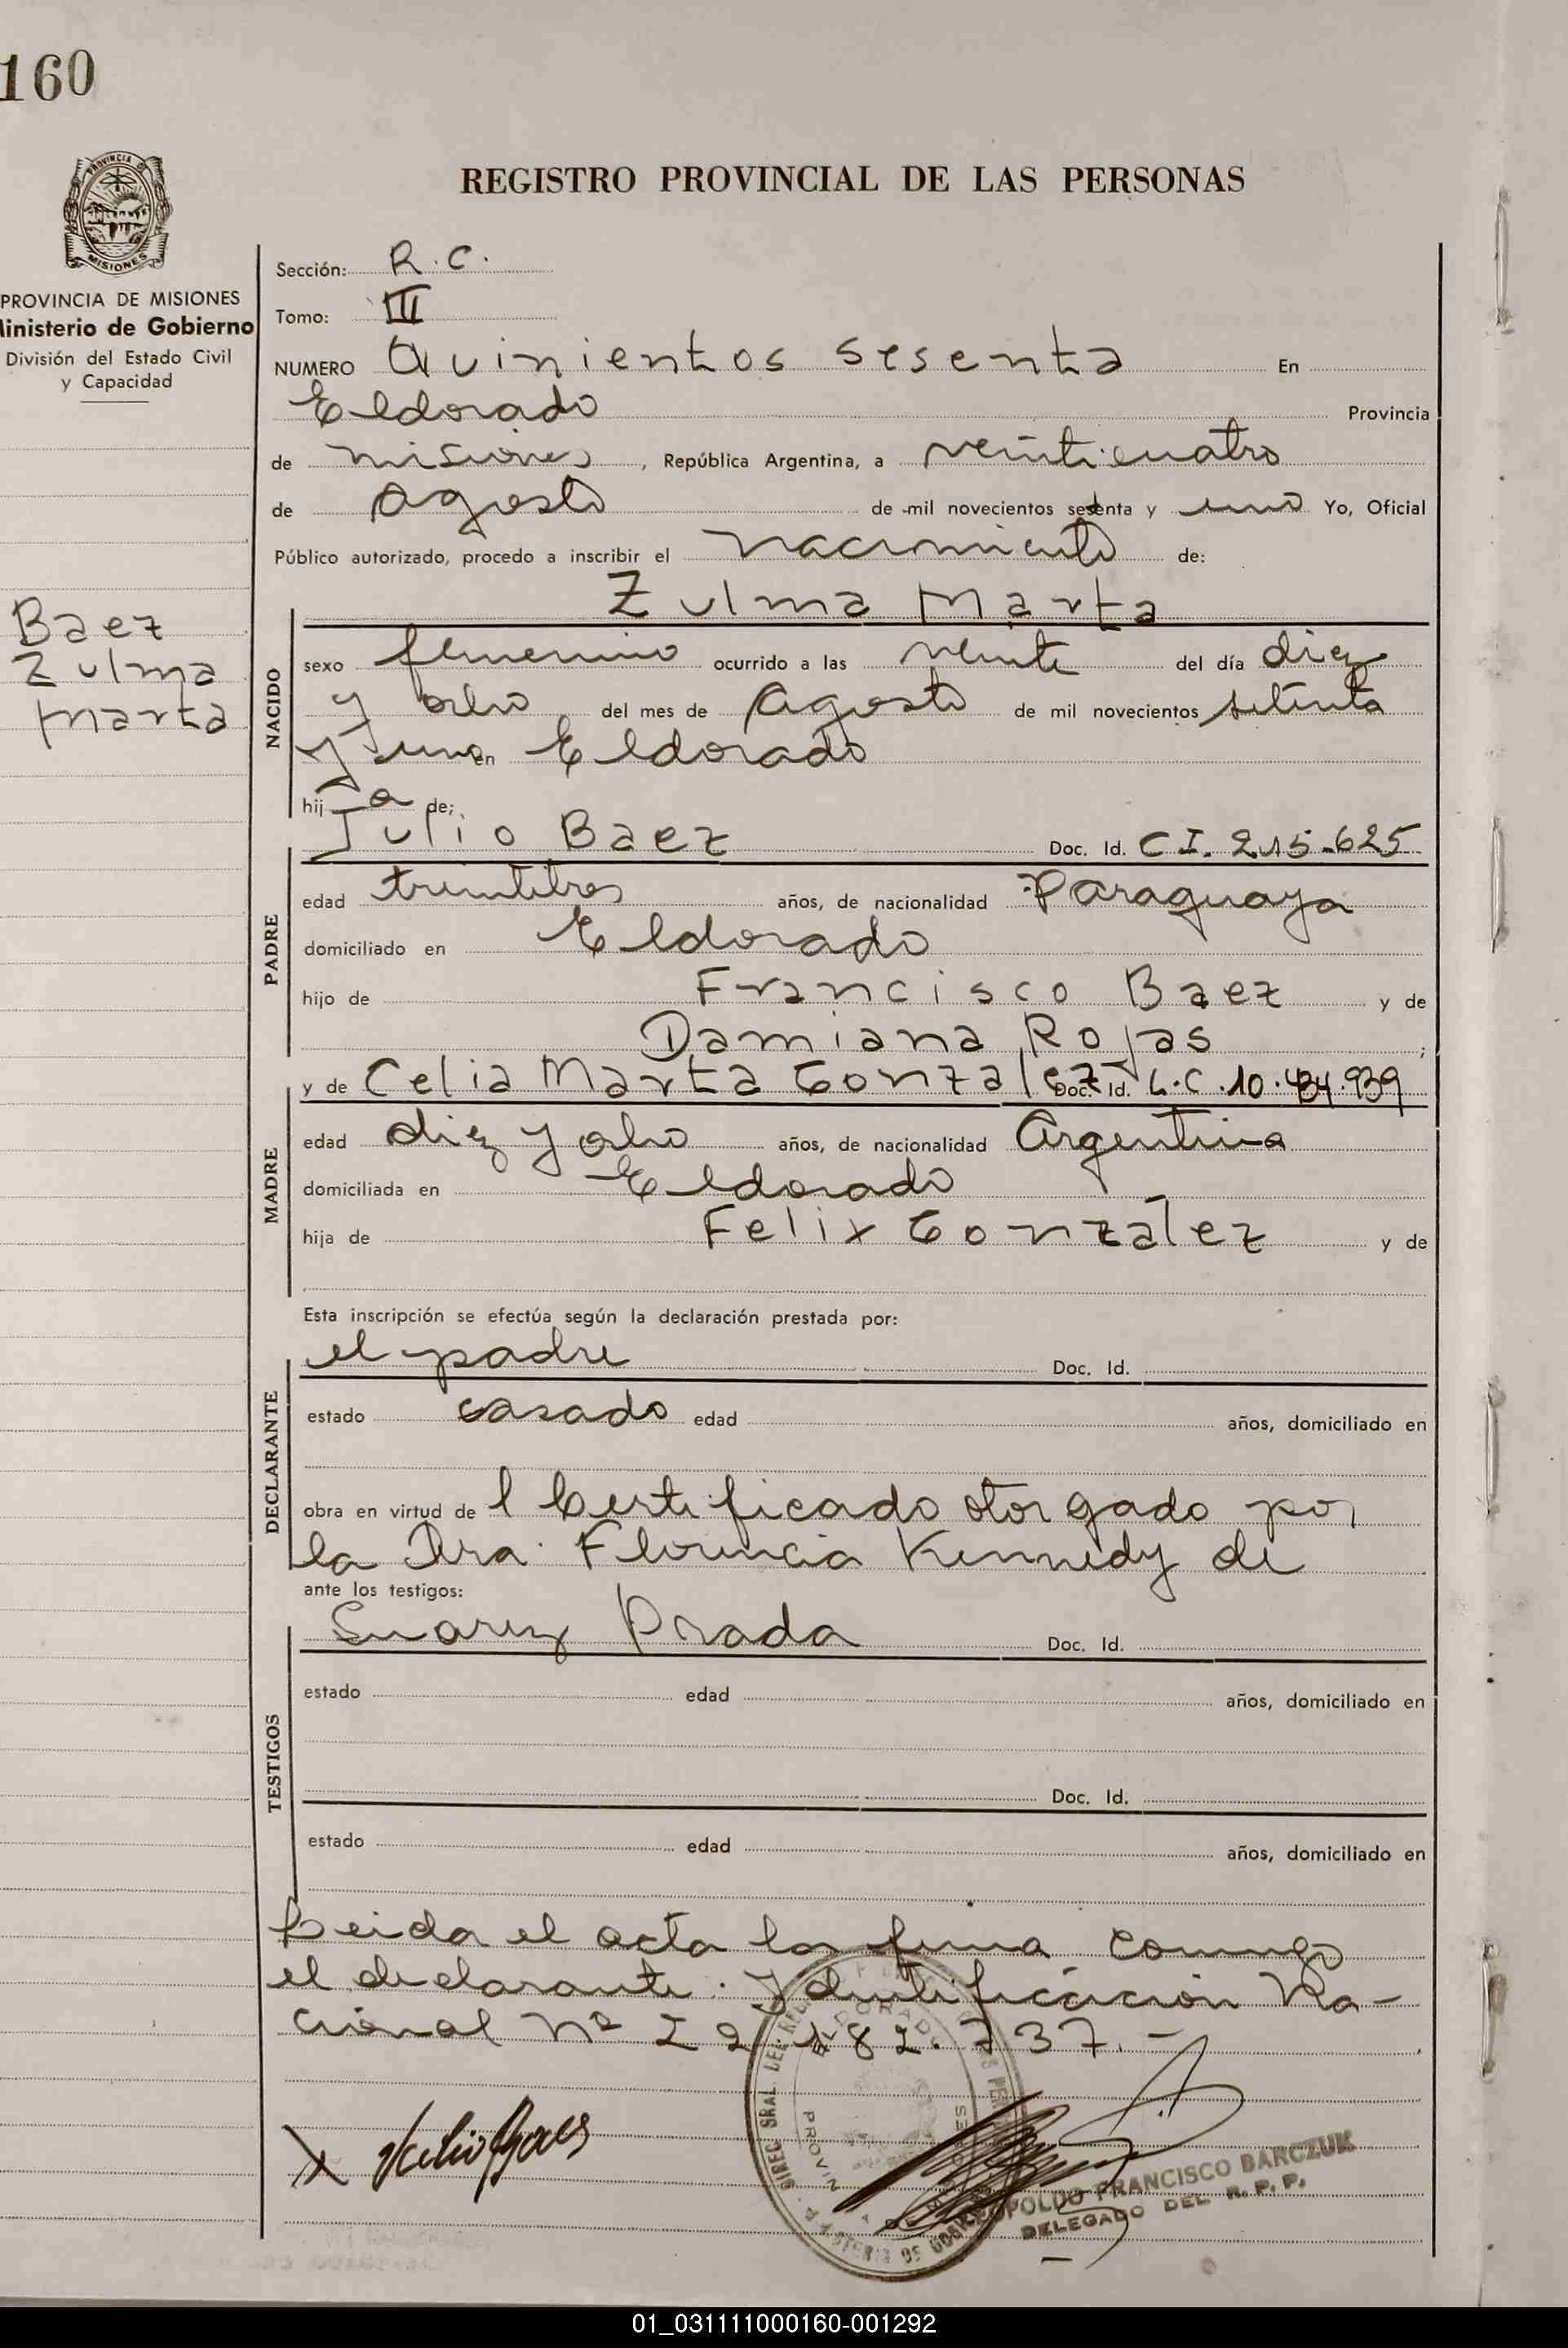 160
PROVINCIA DE
MISIONES
REGISTRO PROVINCIAL DE LAS PERSONAS
PROVINCIA DE MISIONES
Ministerio de Gobierno
División del Estado Civil
y Capacidad
Baez
Zulma
Marta
Sección: R.C.
Tomo: III
NUMERO Quinientos sesenta En
Eldorado Provincia
de misiones, República Argentina, a veinticuatro
de agosto de mil novecientos setenta y uno Yo, Oficial
Público autorizado, procedo a inscribir el nacimiento de:
Zulma Marta
NACIDO
sexo femenino ocurrido a las veinte del día diez
y ocho del mes de Agosto de mil novecientos setenta
y uno en Eldorado
hij a de;
Julio Baez Doc. Id. C I. 215.625
PADRE
edad treintitres años, de nacionalidad Paraguaya
domiciliado en Eldorado
hijo de Francisco Baez y de
Damiana Rojas ;
y de Celia Marta Gonzalez Doc. Id. L.C. 10.434.939
MADRE
edad diez y ocho años, de nacionalidad Argentina
domiciliada en Eldorado
hija de Felix González y de
Esta inscripción se efectúa según la declaración prestada por:
el padre Doc. Id.
DECLARANTE
estado casado edad años, domiciliado en
obra en virtud de l Certificado otorgado por
la Dra. Florencia Kennedy de
ante los testigos:
Suarez Prada Doc. Id.
TESTIGOS
estado edad años, domiciliado en
Doc. Id.
estado edad años, domiciliado en
Leida el acta la firma conmigo
el declarante. Identificación Na-
cional Nº 22.182.737.-
X Julio Baez
ELDORADO
POLDO FRANCISCO BARCZUK
DELEGADO DEL R. P. P.
01_031111000160-001292